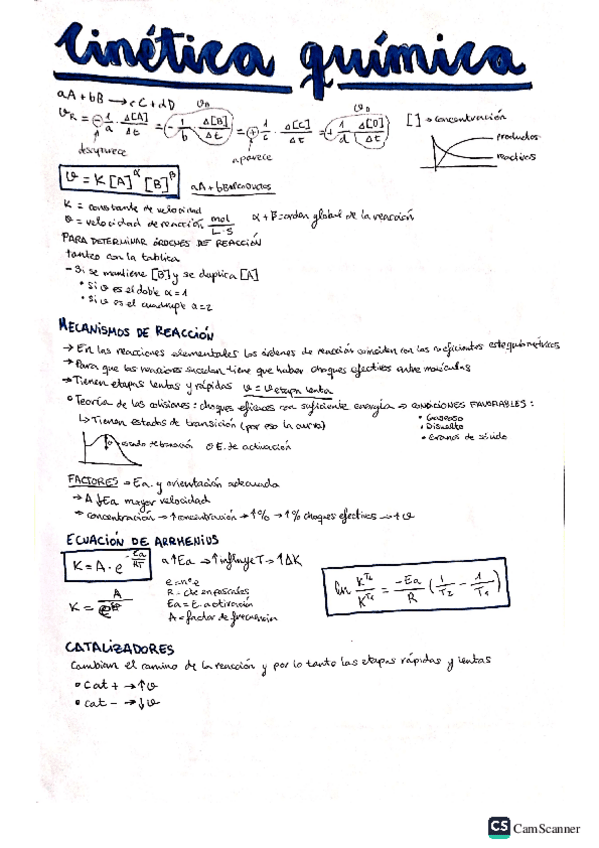 Cinética química
aA + bB → cC + dD
v_R = - 1/a · Δ[A]/Δt = - 1/b · Δ[B]/Δt = + 1/c · Δ[C]/Δt = + 1/d Δ[D]/Δt
[ ] → concentración
desaparece
aparece
productos
reactivos
v = K [A]^α [B]^β
K = constante de velocidad
v = velocidad de reacción mol/L·S
α + β = orden global de la reacción
PARA DETERMINAR ÓRDENES DE REACCIÓN
tanteo con la tablica
- Si se mantiene [B] y se duplica [A]
• Si v es el doble α = 1
• Si v es el cuadruple α = 2
MECANISMOS DE REACCIÓN
→ En las reacciones elementales los órdenes de reacción coinciden con los coeficientes estequiométricos
→ Para que las reacciones sucedan tiene que haber choques efectivos entre moléculas
→ Tienen etapas lentas y rápidas v = v etapa lenta
• Teoría de las colisiones: choques eficaces con suficiente energía → CONDICIONES FAVORABLES:
↳ Tienen estados de transición (por eso la curva)
• Gaseoso
• Disuelto
• Granos de sólido
estado transición
E. de activación
FACTORES → Ea. y orientación adecuada
→ A ↓Ea mayor velocidad
→ concentración → ↑concentración → ↑% → ↑% choques efectivos → ↑v
ECUACIÓN DE ARRHENIUS
K = A · e^(-Ea/RT)
a ↑Ea → ↑influye T → ↑ΔK
e = nº e
R = cte en pascales
Ea = E activación
A = factor de frecuencia
ln K^T2/K^T1 = -Ea/R (1/T2 - 1/T1)
CATALIZADORES
Cambian el camino de la reacción y por lo tanto las etapas rápidas y lentas
• Cat + → ↑v
• cat - → ↓v
CS CamScanner